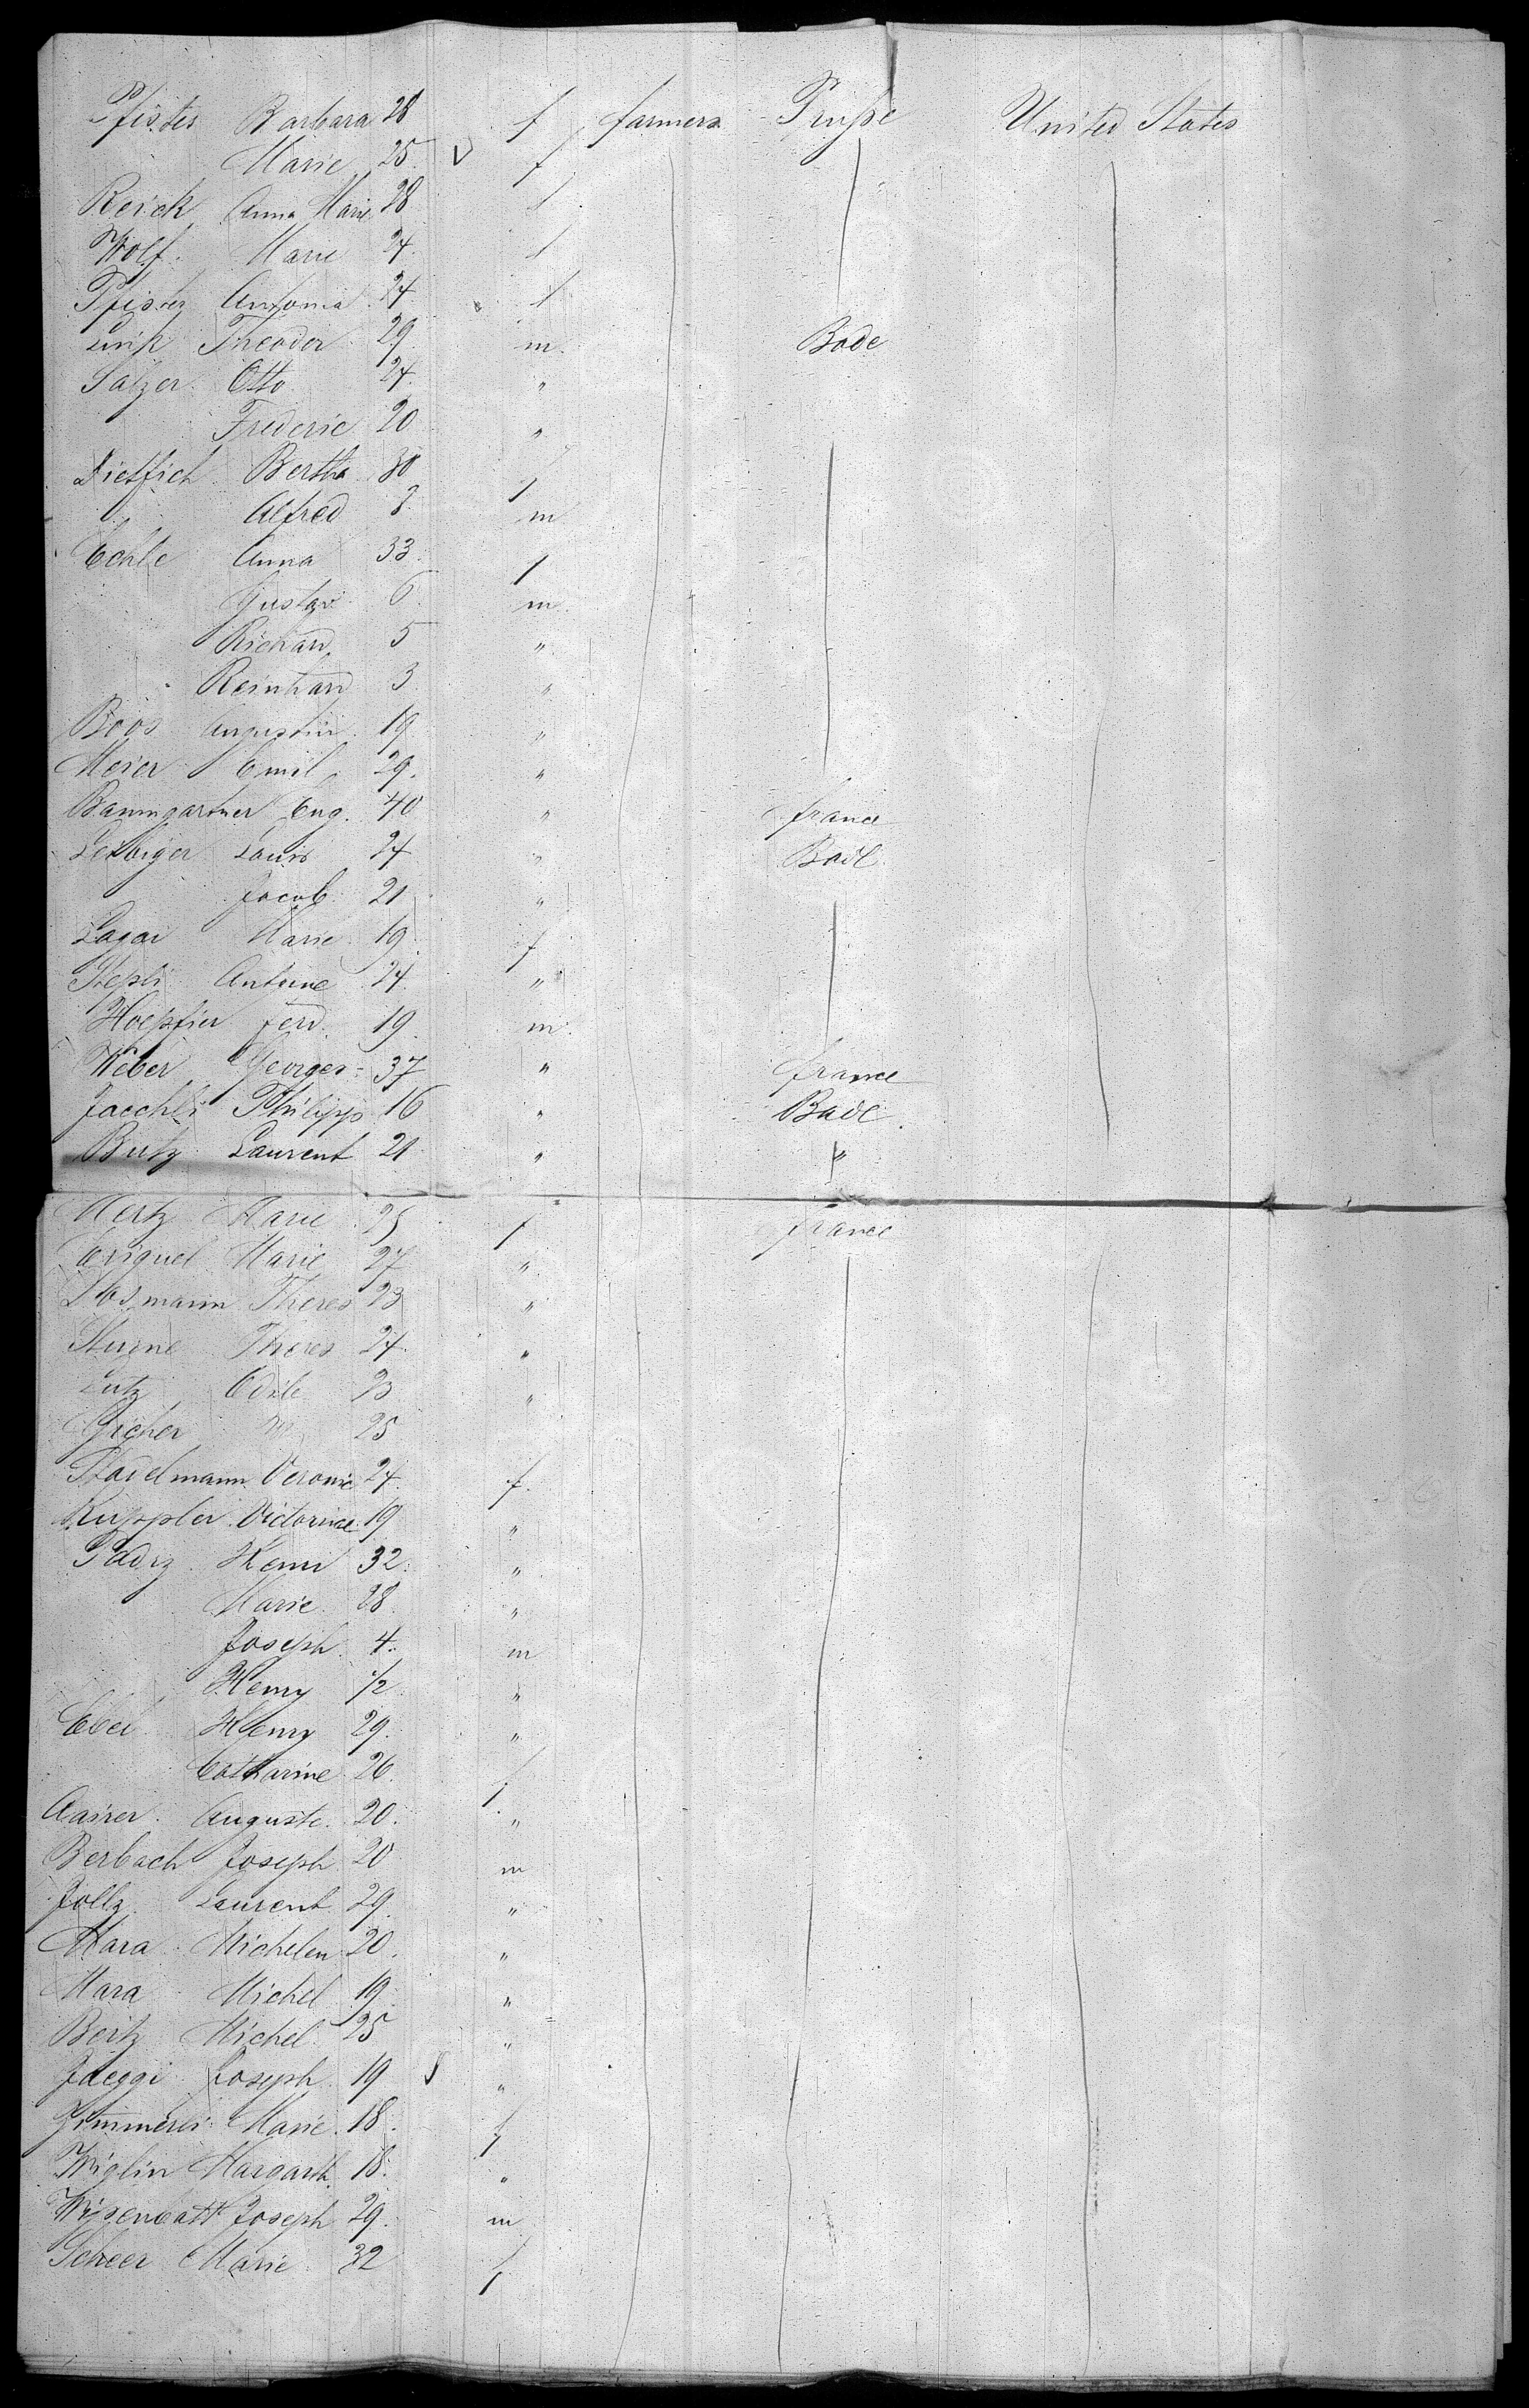 Pfister Barbara 28 f farmers Prusse United States
Marie 25 f
Reick Anna Marie 28 f
Wolf Marie 24 f
Pfister Antonia 24 f
Link Theodor 29 m Bade
Salzer Otto 24 "
Frederic 20 "
Bertha 30 f
Alfred m
Echle Anna 33 f
Gustav 6 m
Richard 5 "
Reinhard 3 "
Boos Augustin 19 "
Meier Emil 29 "
Baumgartner Eug. 40 " france
Louis 24 " Bade
Jacob 21 "
Marie 19 f
Antoine 24 "
Hoepfier ferd. 19 m
Weber Georges 37 " france
Jaechli Philipp 16 " Bade
Butz Laurent 21 " "
Mertz Marie 25 f france
Criquel Marie 27 "
Theres 23 "
Theres 24 "
Lutz Odile 23 "
Gicher M 25
Stadelmann Veronic 24 f
Ruppler Victorine 19 "
Henri 32 "
Marie 28 "
Joseph 4 m
Henry 1/2 "
Ebel Henry 29 "
Catharine 26 f
Auguste 20 "
Berbach Joseph 20 m
Jolly Laurent 29 "
Mara Michelen 20 "
Mara Michel 19 "
Beitz Michel 25 "
Jaeggi Joseph 19 "
Zimmerli Marie 18 f
Wiglin Margarth 18 "
Joseph 29 m
Scheer Marie 32 f